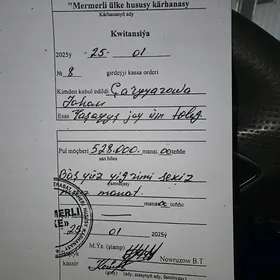 "Mermerli ülke hususy kärhanasy
Kärhananyň ady
Kwitansiýa
2025ý -25- 01
№ 8 girdeýji kassa orderi
Kimden kabul edildi Çaryyarowa
Jahan
Esas Ýaşaýyş jaý üçin töleg
Pul möçberi 528.000. manat 00 teňňe
san bilen
Bäş ýüz ýigrimi sekiz
müň manat.
manat 00 teňňe
25 01 2025ý
M.Ýe. (ştamp)
kassir Nowruzow B.T
(goly) (ady, atasynyň ady, familiýasy)